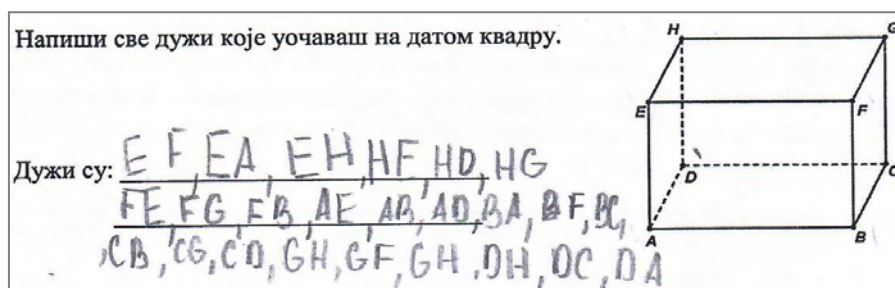 Напиши све дужи које уочаваш на датом квадру.
Дужи су: EF, EA, EH, HF, HD, HG
FE, FG, FB, AE, AB, AD, BA, BF, BC,
,CB, CG, CD, GH, GF, GH, DH, DC, DA
H
G
E
F
D
C
A
B